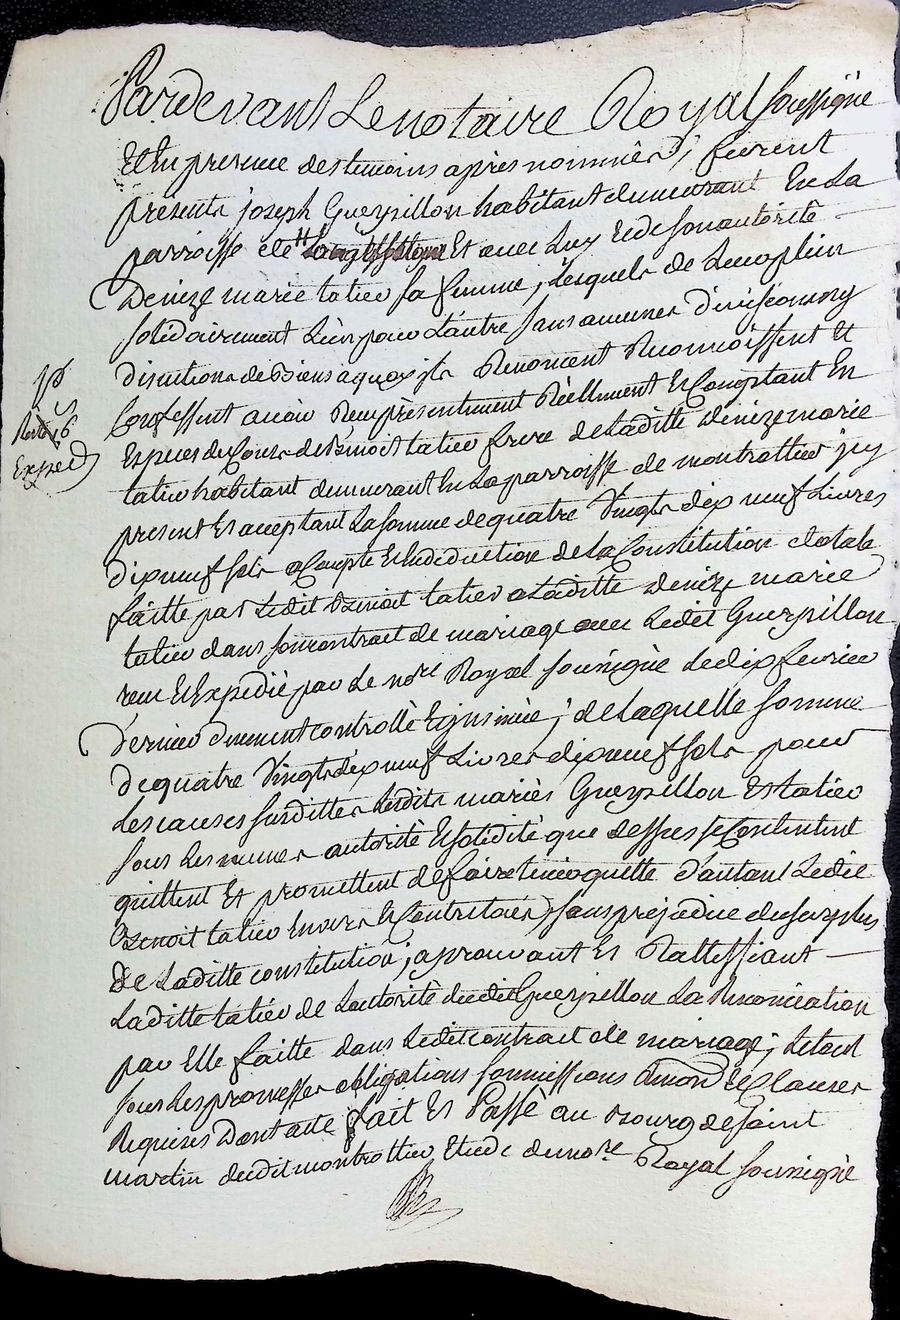 Pardevant Le notaire Royal soussigné
Et En presence des temoins apres nommés, furent
presents joseph Gueyvillon habitant demeurant En La
parroisse de Et avec Luy Et de son autorité
Denize marie tatieu sa femme, lesquels de Leur plein
solidairement L'un pour L'autre sans aucune division ny
discution de Biens a quoy ils Renoncent Reconnoissent Et
Confessent avoir Reçu présentement Réellement Et Comptant En
Especes du Cours de Benoit tatieu frere de Laditte Denize marie
tatieu habitant demeurant En La parroisse de montrottier icy
present Et acceptant La somme de quatre Vingts dix neuf Livres
dix neuf sols a Compte Et En deduction de La Constitution dotale
faitte par Ledit Benoit tatieu a Laditte Denize marie
tatieu dans son contrait de mariage avec Ledit Gueyvillon
reçu Et Expedié par Le nore Royal sousigné Le dix fevrier
dernier duement controllé Et insinué; de laquelle somme
de quatre Vingts dix neuf Livres dix neuf sols pour
Les causes susdittes Lesdits mariés Gueyvillon Et tatieu
sous Les memes autorité Et solidité que dessus se Contentent
quittent Et promettent de faire tenir quitte d'autant Ledit
Benoit tatieu Envers Et Contre tous, sans préjudice du surplus
de Laditte constitution; aprouvant Et Rattiffiant
Laditte tatieu de L'autorité dudit Gueyvillon La Renonciation
par Elle faitte dans Ledit contrait de mariage; Le tout
sous Les promesses obligations soumissions Et Clauses
Requises Dont acte fait Et Passé au Bourg de saint
martin dudit montrottier Etude du nore Royal sousigné
Exped